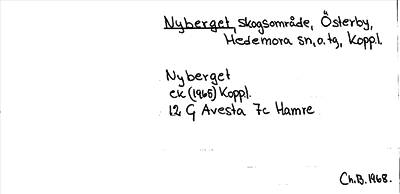 Nyberget, skogsområde, Österby,
Hedemora sn, o. tg, Koppl.
Nyberget
ek (1965) Koppl.
12 G Avesta 7c Hamre
Ch.B. 1968.